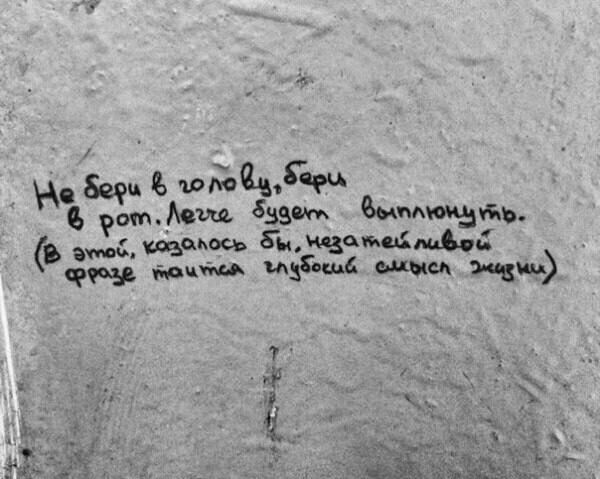 Не бери в голову, бери
в рот. Легче будет выплюнуть.
(В этой, казалось бы, незатейливой
фразе таится глубокий смысл жизни)